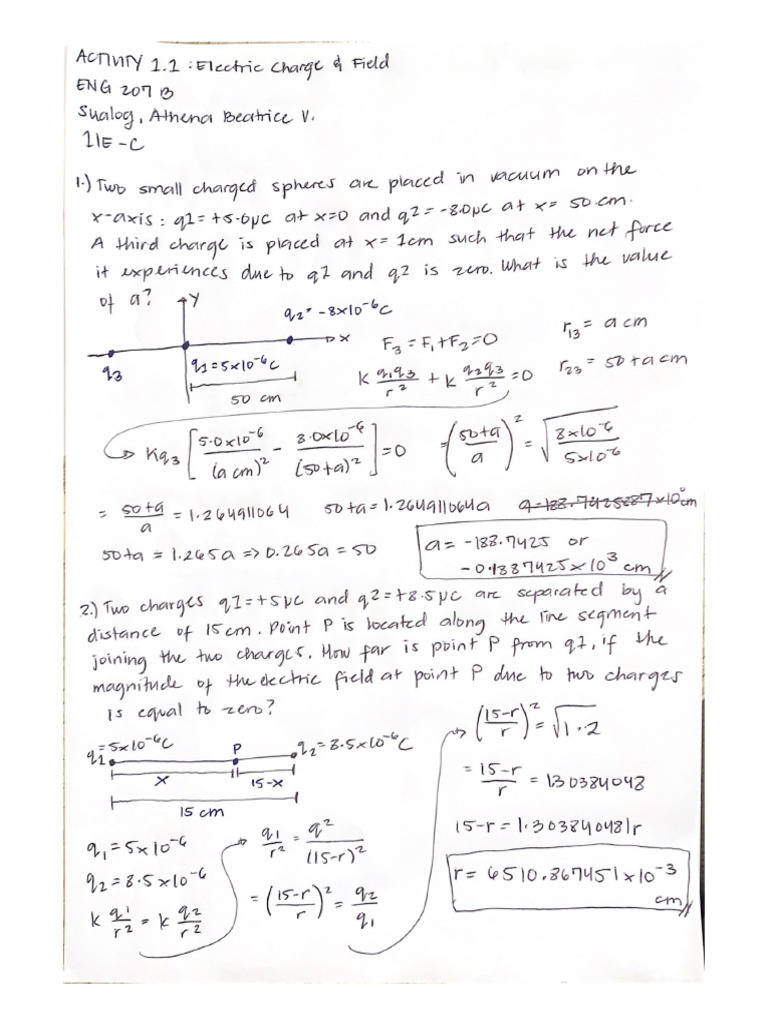 ACTIVITY 1.1 : Electric Charge & Field
ENG 207 B
Sualog, Athena Beatrice V.
2IE - C
1.) Two small charged spheres are placed in vacuum on the
x-axis : q1 = +5.0μC at x=0 and q2 = -8.0μC at x = 50 cm.
A third charge is placed at x = 1cm such that the net force
it experiences due to q1 and q2 is zero. What is the value
of a?
y
q2 = -8x10^-6 C
x
q3
q1 = 5x10^-6 C
50 cm
F3 = F1 + F2 = 0
k q1q3/r^2 + k q2q3/r^2 = 0
r13 = a cm
r23 = 50 + a cm
Kq3 [ 5.0x10^-6/(a cm)^2 - 8.0x10^-6/(50+a)^2 ] = 0
= ( 50+a / a )^2 = √ 8x10^-6 / 5x10^-6
= 50+a / a = 1.264911064
50+a = 1.264911064a
50+a = 1.265a => 0.265a = 50
a = -188.7425 or
-0.1887425 x 10^3 cm
2.) Two charges q1 = +5μC and q2 = +8.5μC are separated by a
distance of 15 cm. Point P is located along the line segment
joining the two charges. How far is point P from q1, if the
magnitude of the electric field at point P due to two charges
is equal to zero?
q = 5x10^-6 C
q1
P
q2 = 8.5x10^-6 C
x
15-x
15 cm
q1 = 5x10^-6
q2 = 8.5x10^-6
k q1/r^2 = k q2/r^2
q1/r^2 = q^2/(15-r)^2
= ( 15-r / r )^2 = q2/q1
( 15-r / r )^2 = √1.2
= 15-r / r = 1.30384048
15-r = 1.303840481r
r = 6510.867451 x 10^-3
cm